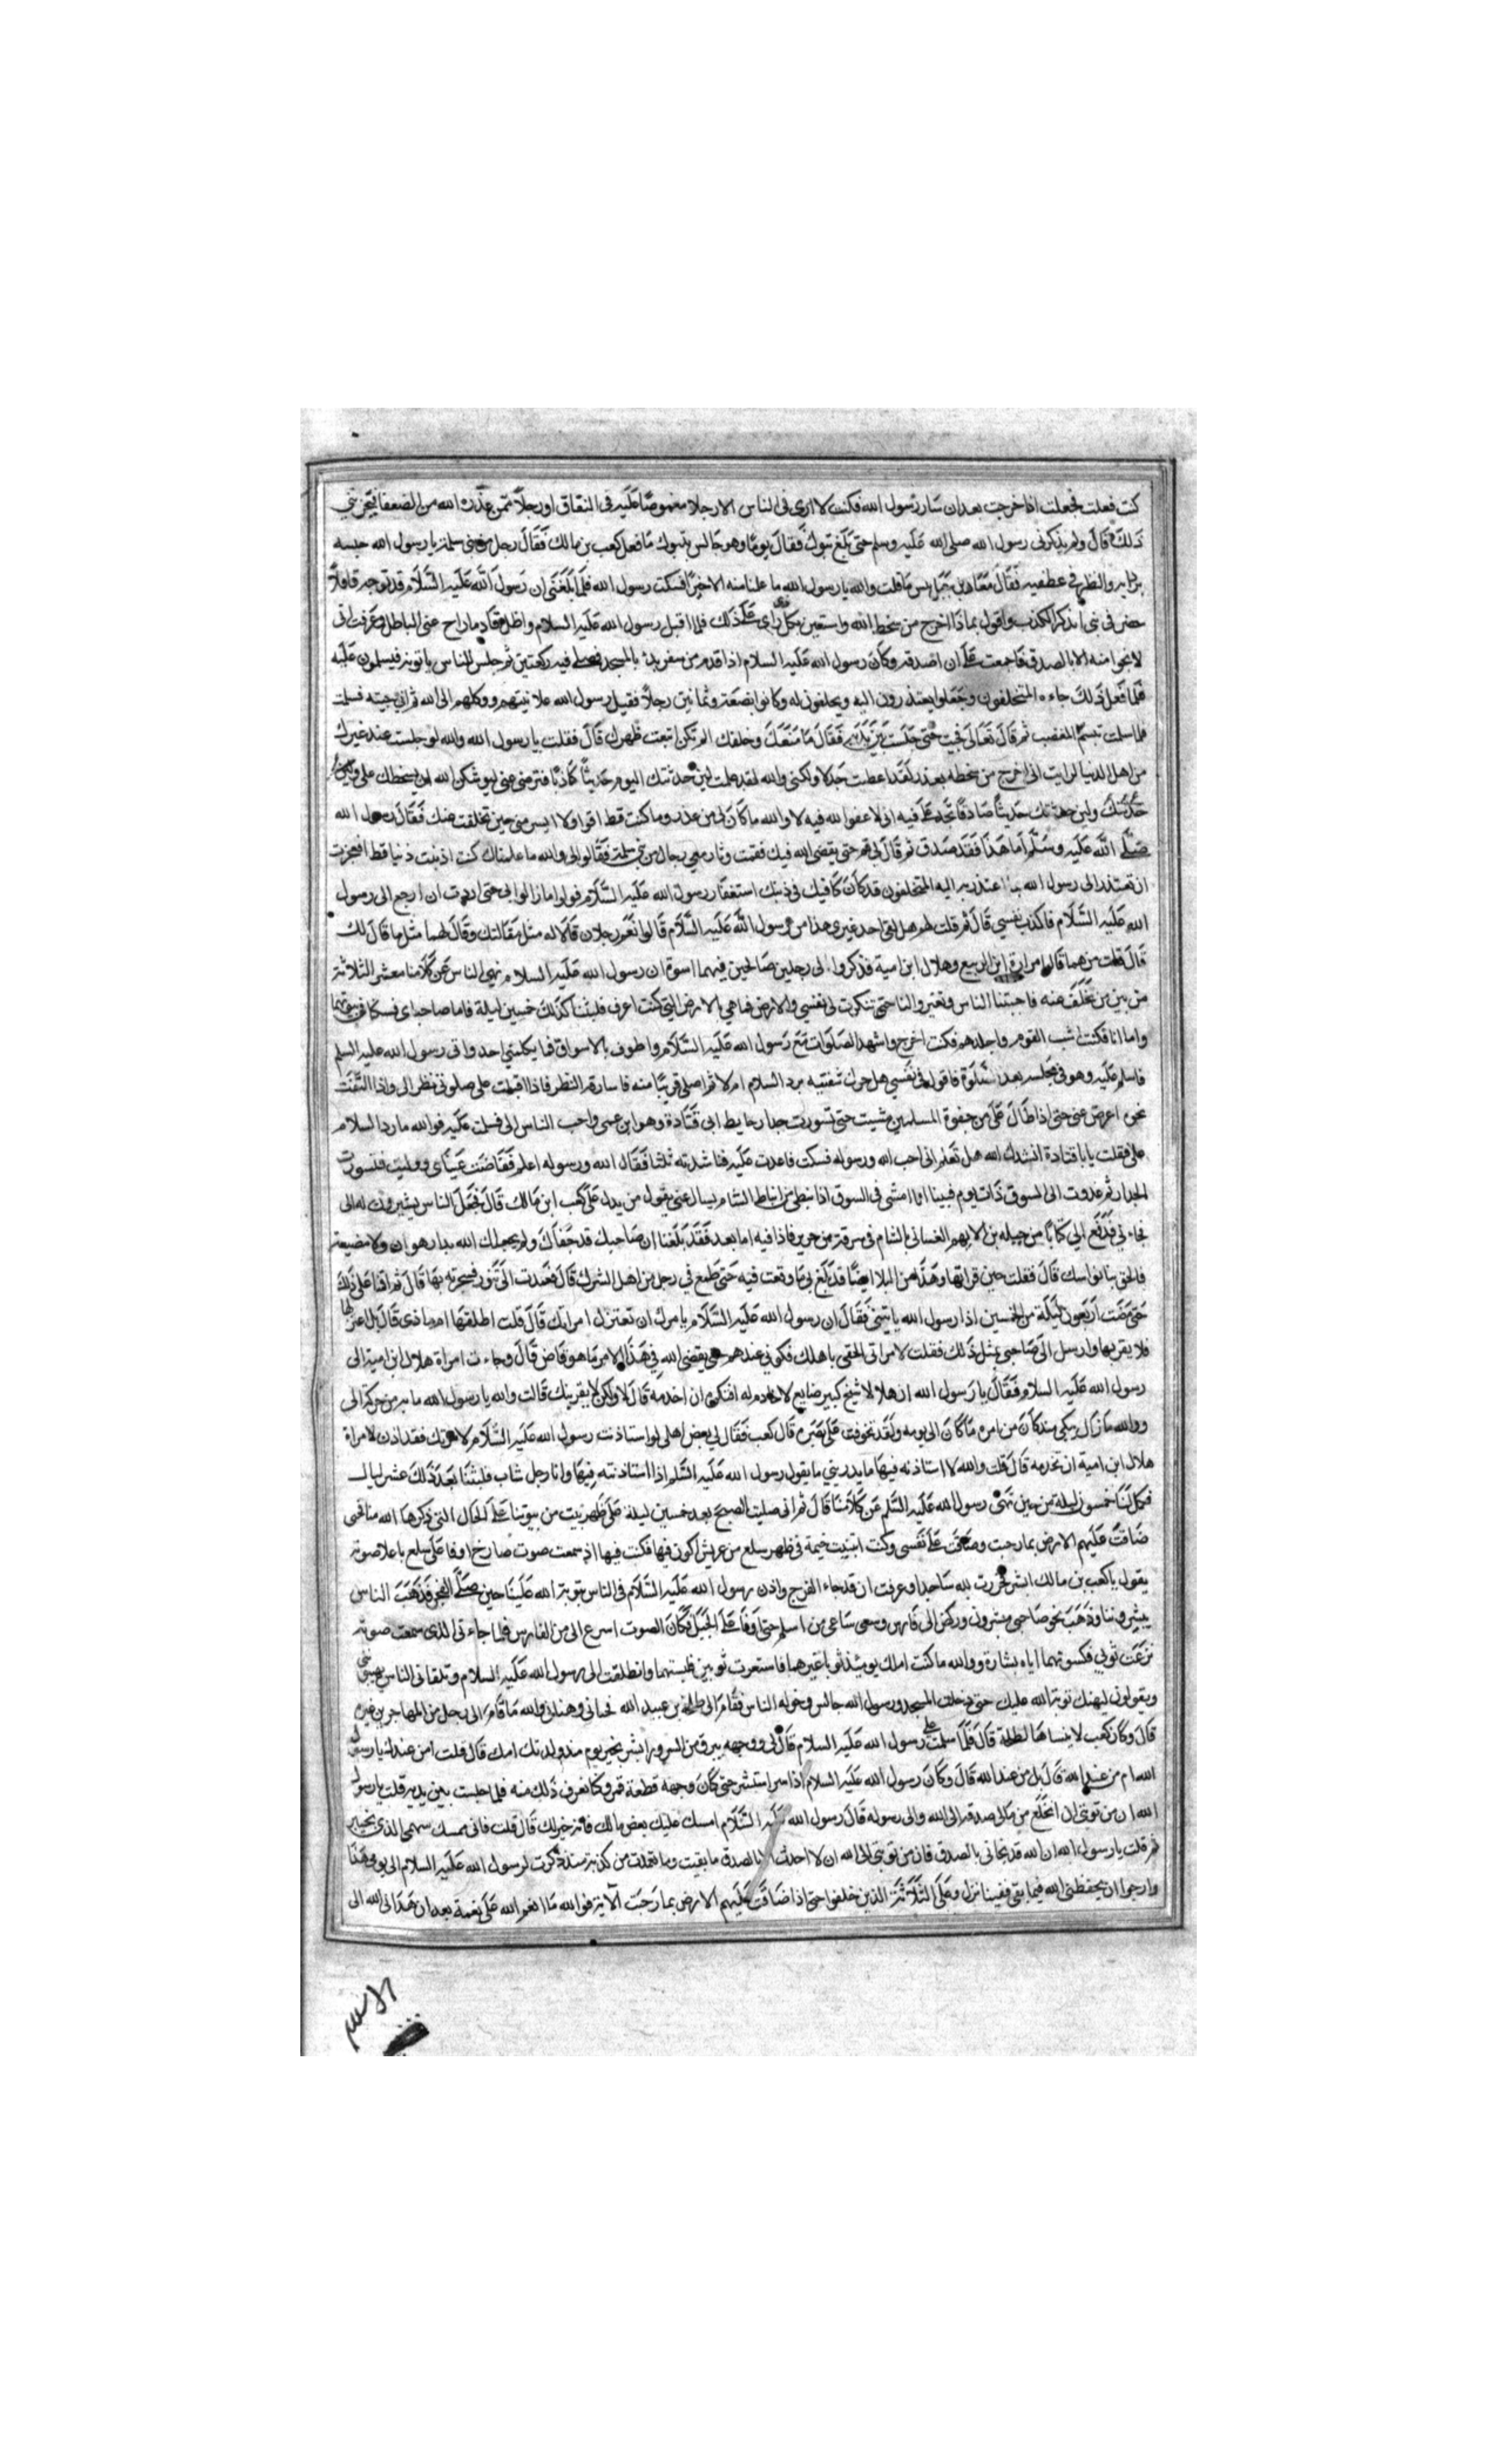 كنت فعلت فجعلت اذا خرجت بعد ان سار رسول الله فكنت لا ارى فى الناس الا رجلا مغموصا عليه فى النفاق او رجلا ممن عذره الله من الضعفا فيحزنني
ذلك قال ولم يذكرنى رسول الله صلى الله عليه وسلم حتى بلغ تبوك فقال يوما وهو جالس بتبوك ما فعل كعب بن مالك فقال رجل من بنى سلمة يا رسول الله حبسه
برداه والنظر فى عطفيه فقال معاذ بن جبل بئس ما قلت والله يا رسول الله ما علمنا منه الا خيرا فسكت رسول الله فلما بلغنى ان رسول الله عليه السلام قد توجه قافلا
حضر فى بثى اتذكر الكذب واقول بماذا اخرج من سخط الله واستعين بكل ذى راى على ذلك فلما اقبل رسول الله عليه السلام واظل قادما راح عنى الباطل وعرفت انى
لا نجوا منه الا بالصدق فاجمعت على ان اصدقه وكان رسول الله عليه السلام اذا قدم من سفر بدا بالمسجد فصلى فيه ركعتين ثم جلس للناس ياتونه فيسلمون عليه
فلما فعل ذلك جاءه المتخلفون وجعلوا يعتذرون اليه ويحلفون له وكانوا بضعة وثمانين رجلا فقبل رسول الله علانيتهم ووكلهم الى الله ثم انى جيته فسلمت
فلما سلمت تبسم المغضب ثم قال تعالى فجيت حتى جلست بين يديه فقال ما منعك وخلفك الم تكن ابتعت ظهرك قال فقلت يا رسول الله والله لو جلست عند غيرك
من اهل الدنيا لرايت انى اخرج من سخطه بعذر لقد اعطيت جدلا ولكنى والله لقد علمت لين حدثتك اليوم حديثا كاذبا فترضى عنى ليوشكن الله ان يسخطك على ولين
حدثتك حديثا صادقا تجد على فيه انى لا عفوا الله فيه لا والله ما كان لى من عذر وما كنت قط اقوا ولا ايسر منى حين تخلفت عنك فقال رسول الله
صلى الله عليه وسلم اما هذا فقد صدق ثم قال لى قم حتى يقضى الله فيك فقمت وثار معى رجال من بنى سلمة فقالوا لى والله ما علمناك كنت اذنبت ذنبا قط افعجزت
ان تعتذر الى رسول الله بما اعتذر به اليه المتخلفون قد كان كافيك فى ذنبك استغفار رسول الله عليه السلام فوالله ما زالوا بى حتى اردت ان ارجع الى رسول
الله عليه السلام فاكذب نفسي قال ثم قلت لهم هل لقى احد غيرى هذا من رسول الله عليه السلام قالوا نعم رجلان قالا له مثل مقالتك وقال لهما مثل ما قال لك
قال قلت من هما قالوا مرارة ابن الربيع وهلال ابن امية فذكروا لى رجلين صالحين فيهما اسوة ان رسول الله عليه السلام نهى الناس عن كلامنا معشر الثلاثة
من بين من تخلف عنه فاجتنبنا الناس وتغيروا لنا حتى تنكرت لى نفسي والارض فما هي بالارض التي كنت اعرف فلبثنا كذلك خمسين ليلة فاما صاحباى فسكنا فى بيوتهما
واما انا فكنت اشب القوم واجلدهم فكنت اخرج واشهد الصلوات مع رسول الله عليه السلام واطوف بالاسواق فما يكلمني احد واتى رسول الله عليه السلم
فاسلم عليه وهو فى مجلسه بعد الصلوة فاقول فى نفسي هل حرك شفتيه برد السلام ام لا ثم اصلى قريبا منه فاسارقه النظر فاذا اقبلت على صلوتى نظر الى واذا التفت
نحوه اعرض عنى حتى اذا طال على من جفوة المسلمين مشيت حتى تسورت جدار حايط ابى قتادة وهو ابن عمى واحب الناس الى فسلمت عليه فوالله ما رد السلام
على فقلت يا با قتادة انشدك الله هل تعلم انى احب الله ورسوله فسكت فاعدت عليه فناشدته ثلثا فقال الله ورسوله اعلم ففاضت عيناى ووليت فتسورت
الجدار ثم غدوت الى السوق ذات يوم فبينا انا امشى فى السوق اذا نبطى من انباط الشام يسال عنى يقول من يدل على كعب ابن مالك قال فجعل الناس يشيرون له الى
فجاءنى فدفع الي كتابا من جبله بن الايهم الغسانى بالشام فى سرقة من حرير فاذا فيه اما بعد فقد بلغنا ان صاحبك قد جفاك ولم يجعلك الله بدار هوان ولا مضيعة
فالحق بنا نواسك قال فقلت حين قراتها وهذا من البلا ايضا قد بلغ بى ما وقعت فيه حتى طمع في رجل من اهل الشرك قال فعمدت الى تنور فسجرته بها قال ثم اقمنا على ذلك
حتى مضت اربعون ليلة من الخمسين اذا رسول الله ياتيني فقال ان رسول الله عليه السلام يامرك ان تعتزل امراتك قال قلت اطلقها ام ماذى قال بل اعتزلها
فلا يقربها وارسل الى صاحبى بمثل ذلك فقلت لامراتى الحقى باهلك فكونى عندهم حتى يقضى الله في هذا الامر ما هو قاض قال وجاءت امراة هلال ابن امية الى
رسول الله عليه السلام فقال يا رسول الله ان هلالا شيخ كبير ضايع لا خادم له افتكره ان اخدمه قال لا ولكن لا يقربنك قالت والله يا رسول الله ما به من حركة الى
ووالله ما زال يبكى منذ كان من امره ما كان الى يومه ولقد تخوفت على بصره قال كعب فقال لي بعض اهلى لو استاذنت رسول الله عليه السلام لامراتك فقد اذن لامراة
هلال ابن امية ان تخدمه قال قلت والله لا استاذنه فيها ما يدريني ما يقول رسول الله عليه السلم اذا استاذنته فيها وانا رجل شاب فلبثنا بعد ذلك عشر ليال
فكمل لنا خمسون ليلة من حين نهى رسول الله عليه السلم عن كلامنا قال ثم انى صليت الصبح بعد خمسين ليلة على ظهر بيت من بيوتنا على الحال التى ذكرها الله منا
ضاقت عليهم الارض بما رحبت وضاقت على نفسى وكنت ابتنيت خيمة فى ظهر سلع من عريش اكون فيها فكنت فيها اذ سمعت صوت صارخ اوفا على سلع باعلا صوته
يقول يا كعب بن مالك ابشر فخررت لله ساجدا وعرفت ان قد جاء الفرج واذن رسول الله عليه السلام فى الناس بتوبة الله علينا حين صلى الفجر فذهب الناس
يبشروننا وذهب نحو صاحبى مبشرون وركض الى فارس وسعى ساعى من اسلم حتى اوفا على الجبل فكان الصوت اسرع الى من الفارس فلما جاءنى الذى سمعت صوته
نزعت ثوبي فكسوتهما اياه بشارة ووالله ما كنت املك يومئذ ثوبا غيرهما فاستعرت ثوبين فلبستهما وانطلقت الى رسول الله عليه السلام وتلقانى الناس
ويقولون ليهنك توبة الله عليك حتى دخلت المسجد ورسول الله جالس وحوله الناس فقام الى طلحة بن عبيد الله فحيانى وهنانى والله ما قام الى رجل من المهاجرين غيره
قال وكان كعب لا ينساها لطلحة قال فلما سلمت على رسول الله عليه السلام قال لى ووجهه يبرق من السرور ابشر بخير يوم منذ ولدتك امك قال قلت امن عندك يا رسول
الله ام من عند الله قال بل من عند الله قال وكان رسول الله عليه السلام اذا سر استبشر حتى كان وجهه قطعة قمر وكنا نعرف ذلك منه فلما جلست بين يديه قلت يا رسول
الله ان من توبتى ان انخلع من مالى صدقة الى الله والى رسوله قال رسول الله عليه السلام امسك عليك بعض مالك فهو خير لك قال قلت فانى ممسك سهمى الذى بخيبر
ثم قلت يا رسول الله ان الله قد نجانى بالصدق فان من توبتى الى الله ان لا احدث الا بالصدق ما بقيت وما تعمدت من كذبة منذ ذكرت لرسول الله عليه السلام الى يومى هذا
وارجوا ان يحفظنى الله فيما بقى ففينا نزل وعلى الثلاثة الذين خلفوا حتى اذا ضاقت عليهم الارض بما رحبت الآية فوالله ما انعم الله على نعمة بعد ان هدانى الله الى